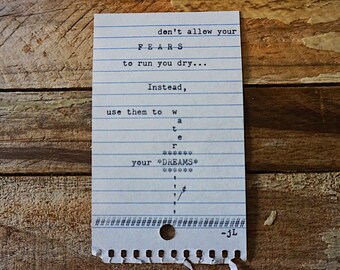 don't allow your
FEARS
to run you dry...
Instead,
use them to w
a
t
e
r
******
your *DREAMS*
******
-jL